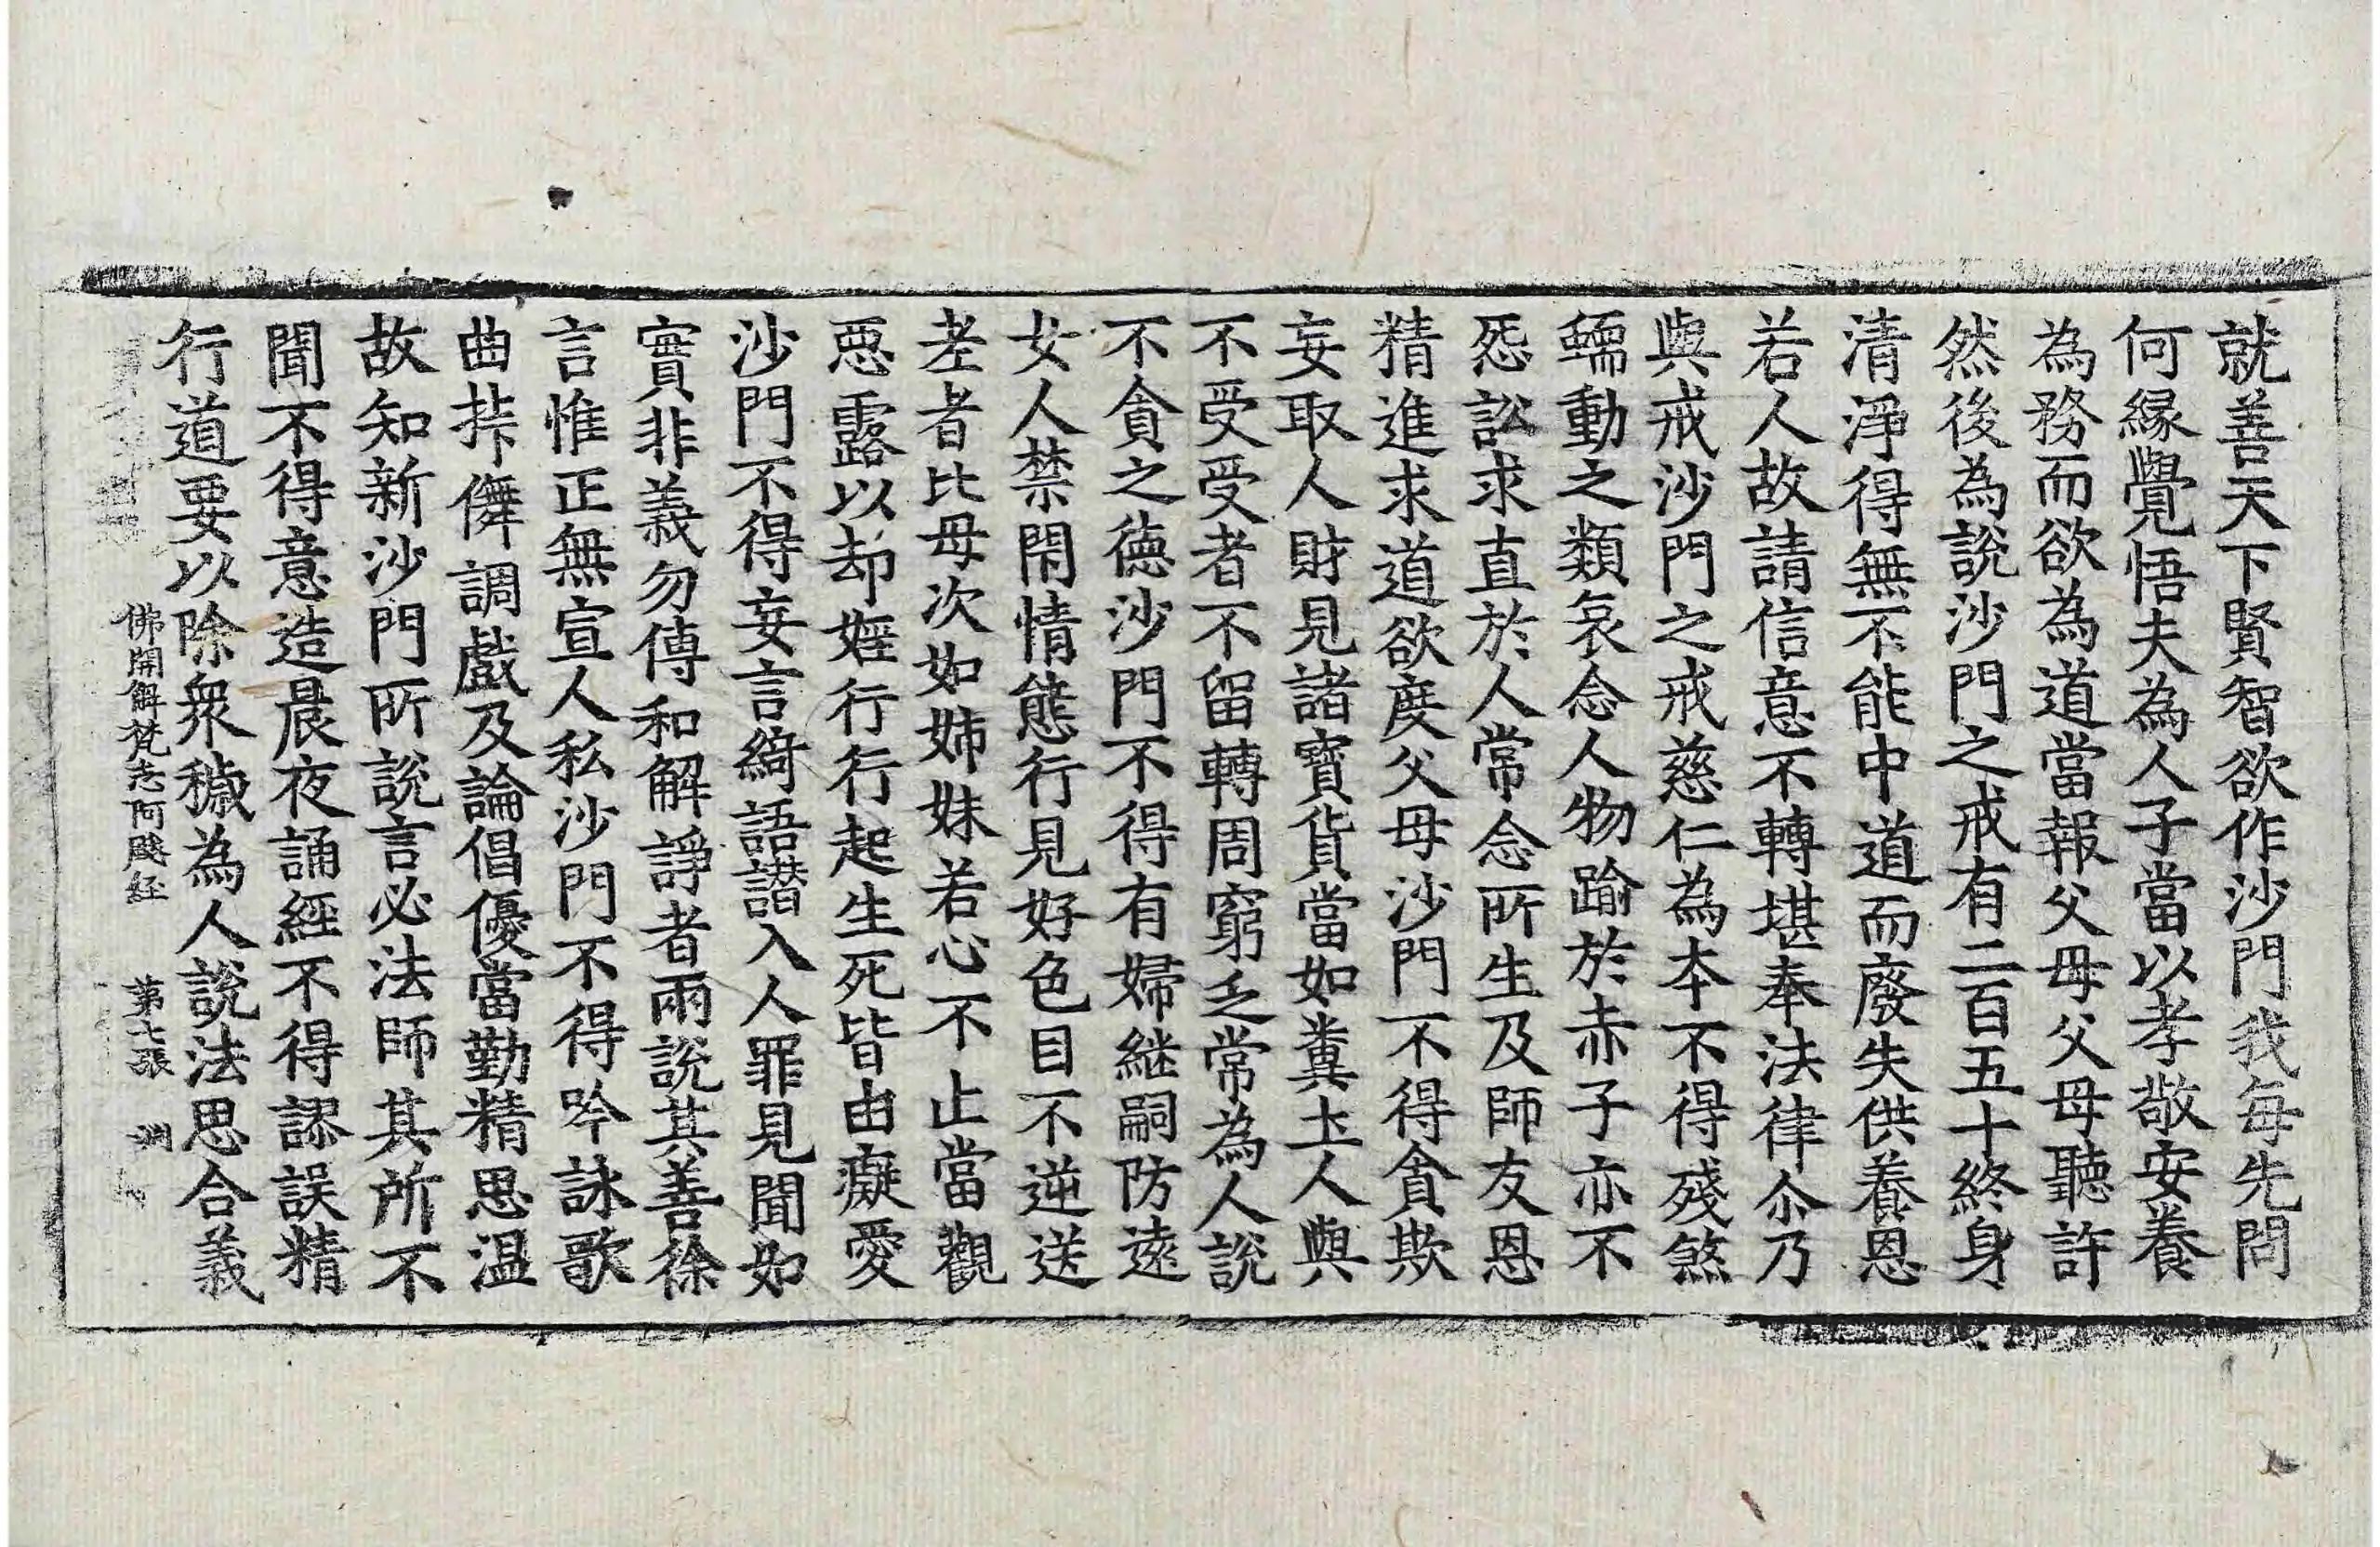 就善天下賢智欲作沙門我每先問
何緣覺悟夫為人子當以孝敬安養
為務而欲為道當報父母父母聽許
然後為說沙門之戒有二百五十終身
清淨得無不能中道而廢失供養恩
若人故請信意不轉堪奉法律尒乃
與戒沙門之戒慈仁為本不得殘煞
蠕動之類哀念人物踰於赤子亦不
怨訟求直於人常念所生及師友恩
精進求道欲度父母沙門不得貪欺
妄取人財見諸寶貨當如糞土人與
不受受者不留轉周窮乏常為人說
不貪之德沙門不得有婦繼嗣防遠
女人禁閇情態行見好色目不逆送
老者比母次如姉妹若心不止當觀
惡露以却婬行行起生死皆由癡愛
沙門不得妄言綺語譖入人罪見聞如
實非義勿傳和解諍者兩說其善徐
言惟正無宣人私沙門不得吟詠歌
曲挊儛調戲及論倡優當勤精思溫
故知新沙門所說言必法師其所不
聞不得意造晨夜誦經不得謬誤精
行道要以除衆穢為人說法思合義
佛開解梵志阿颰経 第七張 渊